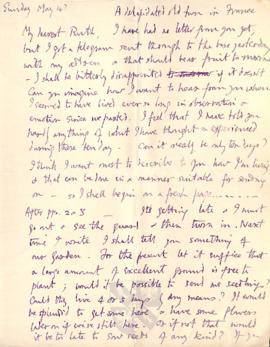 Sunday May 14th A dilapidated old farm in France
My dearest Ruth, I have had no letter from you yet,
but I got a telegram sent through to the base yesterday
with my address & that should bear fruit tomorrow
– I shall be bitterly disappointed if it doesn't
Can you imagine how I want to hear from you whom
I seemed to have lived ever so long in observation &
emotion since we parted. I feel that I have told you
hardly anything of what I have thought or experienced
during those ten days. Can it really be only ten days?
I think I want most to describe to you how I'm living
& that can be done in a manner suitable for sending
on – so I shall begin on a fresh page.........
After pp. 2 & 3 – It's getting late & I must
go out & see the guard & then turn in. Next
time I write I shall tell you something of
our garden. For the present let it suffice that
a large amount of excellent ground is free to
plant; would it be possible to send me seedlings?
Could they live 4 or 5 days by any means? It would
be splendid to get some here & have some flowers
later on if we're still here – or if not that would
it be too late to sow seeds of any kind? If you